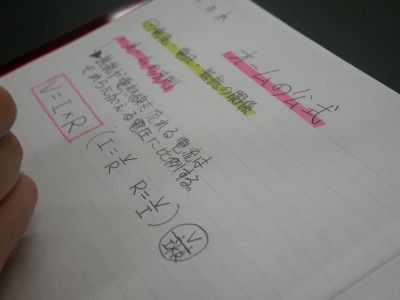 オームの公式
電流・電圧・抵抗の関係
オームの法則
抵抗や電熱線を流れる電流は
それらに加える電圧に比例する。
V=I×R (I=V/R R=V/I) V I×R